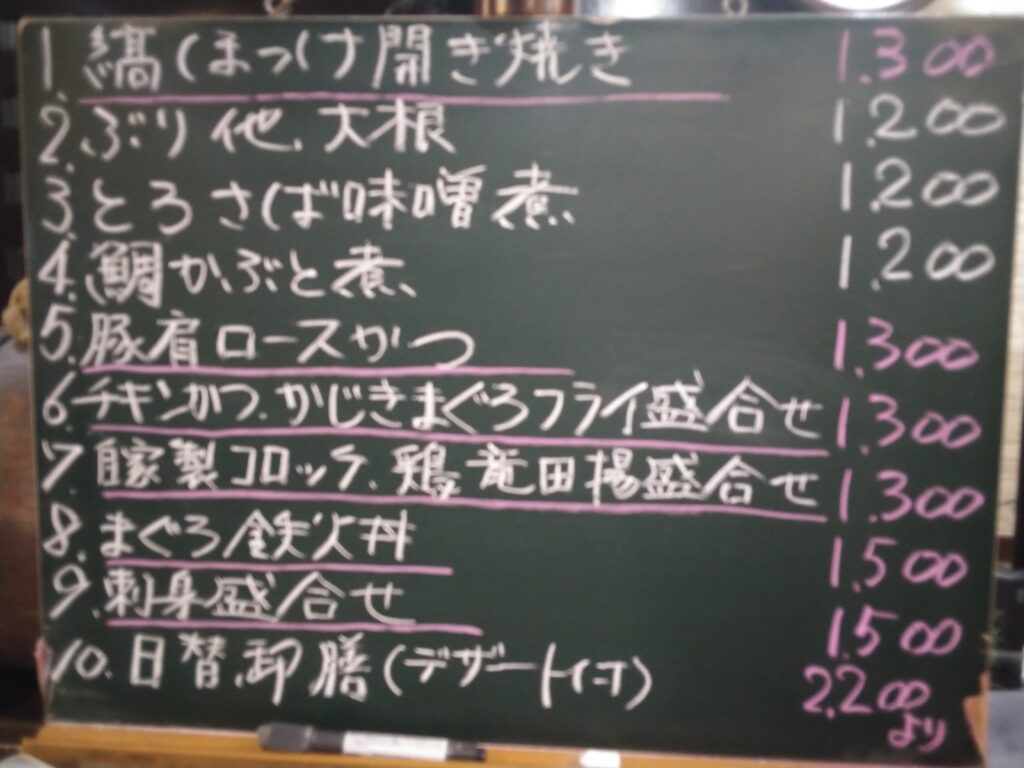 1. 縞ほっけ開き焼き 1.300
2. ぶり他、大根 1.200
3. とろさば味噌煮 1.200
4. 鯛かぶと煮 1.200
5. 豚肩ロースかつ 1.300
6. チキンかつ、かじきまぐろフライ盛合せ 1.300
7. 自家製コロッケ、鶏竜田揚盛合せ 1.300
8. まぐろ鉄火丼 1.500
9. 刺身盛合せ 1.500
10. 日替御膳(デザート付) 2.200
より